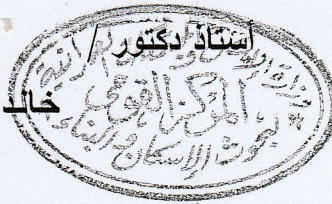 أستاذ دكتور /
خالد
المركز القومى
لبحوث الإسكان والبناء